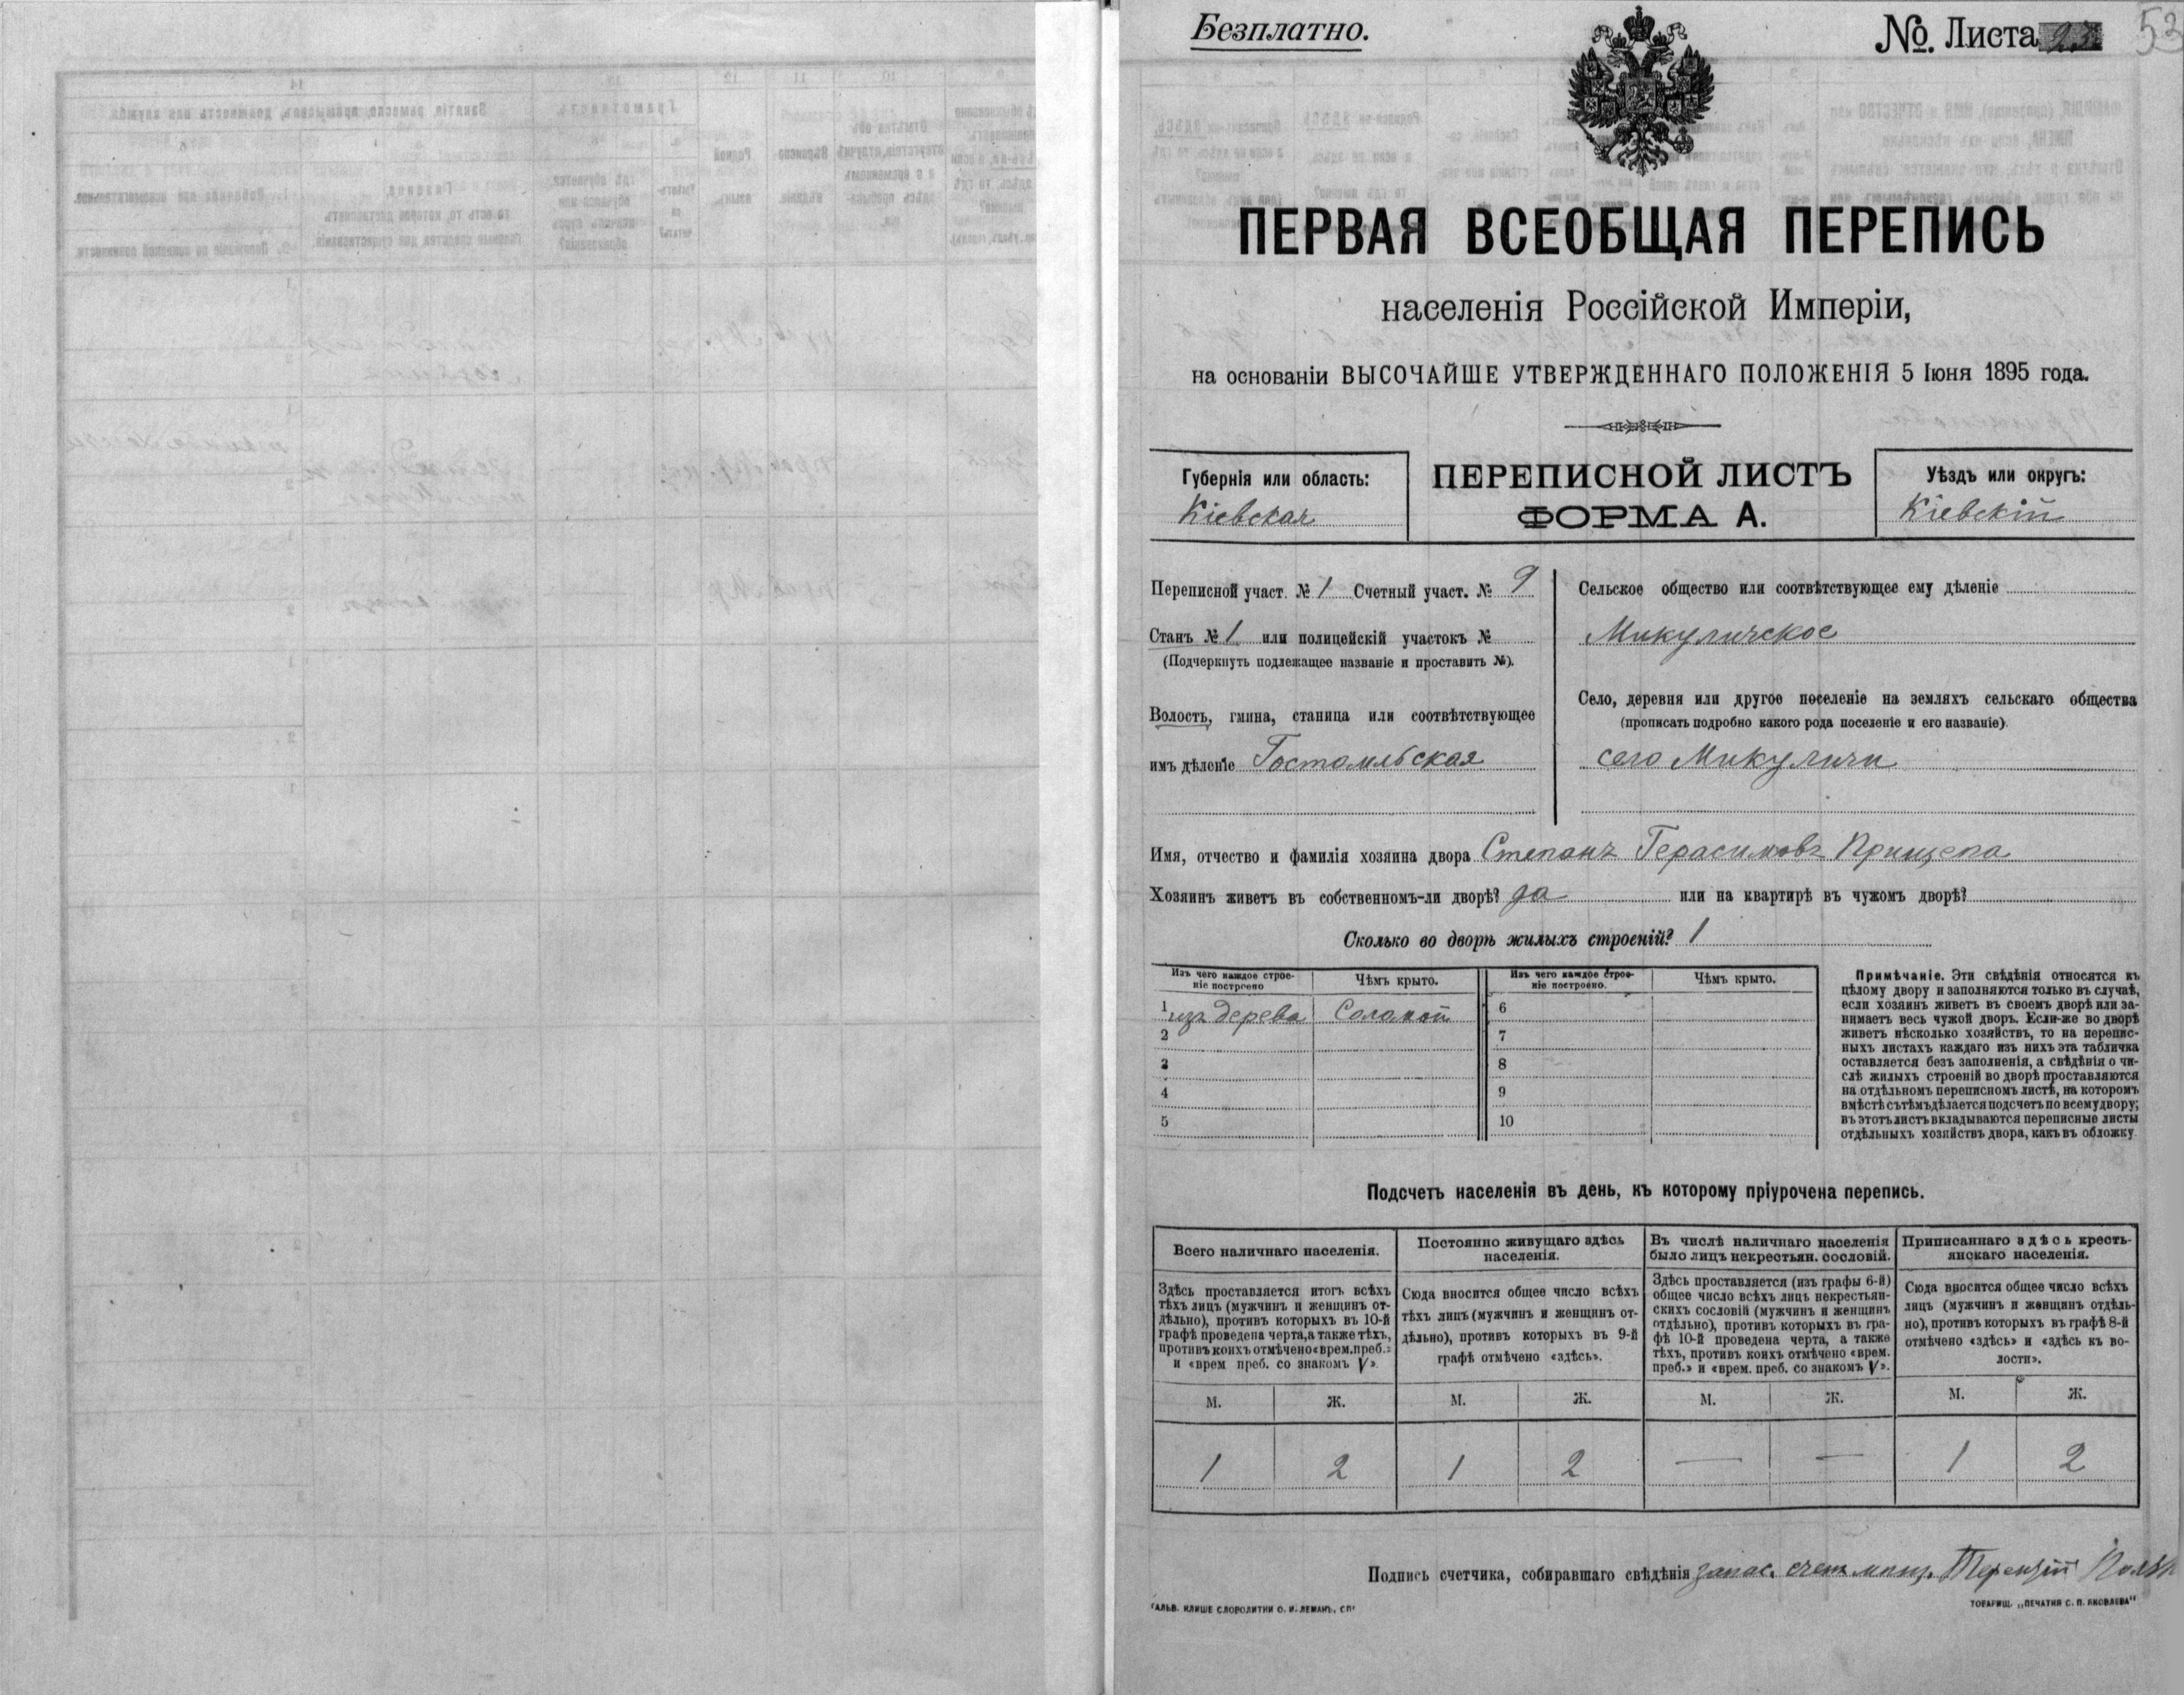 Безплатно.
№. Листа
53
ПЕРВАЯ ВСЕОБЩАЯ ПЕРЕПИСЬ
населенія Россійской Имперіи,
на основаніи ВЫСОЧАЙШЕ УТВЕРЖДЕННАГО ПОЛОЖЕНІЯ 5 Іюня 1895 года.
Губернія или область:
Кіевская
ПЕРЕПИСНОЙ ЛИСТЪ
ФОРМА А.
Уѣздъ или округъ:
Кіевскій
Переписной участ. № 1 Счетный участ. № 9
Станъ № 1 или полицейскій участокъ №
(Подчеркнуть подлежащее названіе и проставить №).
Волость, гмина, станица или соотвѣтствующее
имъ дѣленіе Гостомльская
Сельское общество или соотвѣтствующее ему дѣленіе
Микуличское
Село, деревня или другое поселеніе на земляхъ сельскаго общества
(прописать подробно какого рода поселеніе и его названіе)
село Микуличи
Имя, отчество и фамилія хозяина двора Степанъ Герасимовъ Прищепа
Хозяинъ живетъ въ собственномъ-ли дворѣ? да или на квартирѣ въ чужомъ дворѣ?
Сколько во дворѣ жилыхъ строеній? 1
Изъ чего каждое строе-
ніе построено
Чѣмъ крыто.
Изъ чего каждое строе-
ніе построено.
Чѣмъ крыто.
1 изъ дерева Соломой 6
2 7
3 8
4 9
5 10
Примѣчаніе. Эти свѣдѣнія относятся къ
цѣлому двору и заполняются только въ случаѣ,
если хозяинъ живетъ въ своемъ дворѣ или за-
нимаетъ весь чужой дворъ. Если-же во дворѣ
живетъ нѣсколько хозяйствъ, то на перепис-
ныхъ листахъ каждаго изъ нихъ эта табличка
оставляется безъ заполненія, а свѣдѣнія о чи-
слѣ жилыхъ строеній во дворѣ проставляются
на отдѣльномъ переписномъ листѣ, на которомъ
вмѣстѣ съ тѣмъ дѣлается подсчетъ по всему двору;
въ этотъ листъ вкладываются переписные листы
отдѣльныхъ хозяйствъ двора, какъ въ обложку
Подсчетъ населенія въ день, къ которому пріурочена перепись.
Всего наличнаго населенія.
Здѣсь проставляется итогъ всѣхъ
тѣхъ лицъ (мужчинъ и женщинъ от-
дѣльно), противъ которыхъ въ 10-й
графѣ проведена черта, а также тѣхъ,
противъ коихъ отмѣчено «врем. преб.»
и «врем преб. со знакомъ V».
М. Ж.
1 2
Постоянно живущаго здѣсь
населенія.
Сюда вносится общее число всѣхъ
тѣхъ лицъ (мужчинъ и женщинъ от-
дѣльно), противъ которыхъ въ 9-й
графѣ отмѣчено «здѣсь».
М. Ж.
1 2
Въ числѣ наличнаго населенія
было лицъ некрестьян. сословій.
Здѣсь проставляется (изъ графы 6-й)
общее число всѣхъ лицъ некрестьян-
скихъ сословій (мужчинъ и женщинъ
отдѣльно), противъ которыхъ въ гра-
фѣ 10-й проведена черта, а также
тѣхъ, противъ коихъ отмѣчено «врем.
преб.» и «врем. преб. со знакомъ V».
М. Ж.
— —
Приписаннаго здѣсь кресть-
янскаго населенія.
Сюда вносится общее число всѣхъ
лицъ (мужчинъ и женщинъ отдѣль-
но), противъ которыхъ въ графѣ 8-й
отмѣчено «здѣсь» и «здѣсь къ во-
лости».
М. Ж.
1 2
Подпись счетчика, собиравшаго свѣдѣнія запас. счетчикъ Терентій
ТОВАРИЩ. „ПЕЧАТНЯ С. П. ЯКОВЛЕВА"